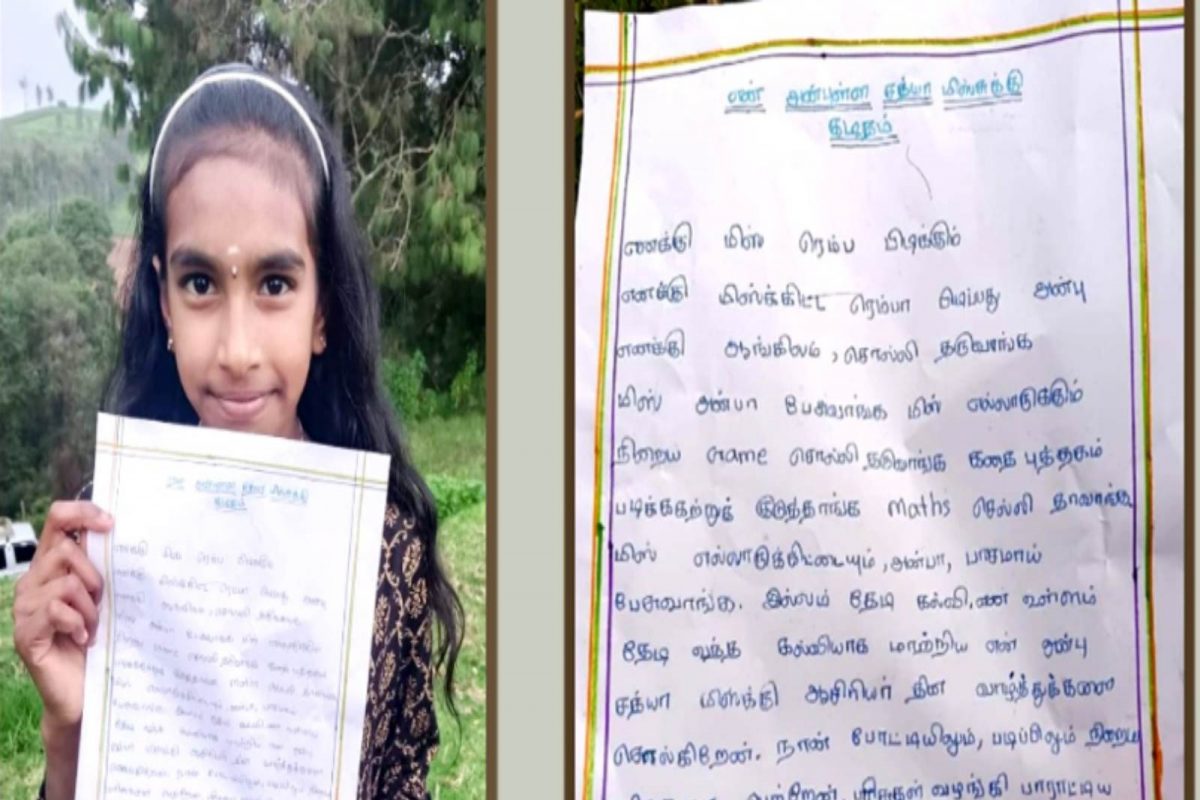 என் அன்புள்ள சத்யா மிஸ்சுக்கு
கடிதம்
எனக்கு மிஸ் ரெம்ப பிடிக்கும்
எனக்கு மிஸ்க்கிட்ட ரெம்பா அன்பு
எனக்கு ஆங்கிலம், சொல்லி தருவாங்க
மிஸ் அன்பா பேசுவாங்க மிஸ் எல்லாடுக்கும்
நிறைய Game சொல்லி தருவாங்க கதை புத்தகம்
படிக்கக்கற்றுக் குடுத்தாங்க Maths செல்லி தாவாங்க
மிஸ் எல்லாடுக்கிட்டையும், அன்பா, பாசமாய்
பேசுவாங்க. இல்லம் தேடி கல்வி, என் உள்ளம்
தேடி வந்த கல்வியாக மாற்றிய என் அன்பு
சத்யா மிஸ்க்கு ஆசிரியர் தின வாழ்த்துக்களை
சொல்கிறேன். நான் போட்டியிலும், படிப்பிலும் நிறைய
பரிசுகள் வழங்கி பாராட்டிய